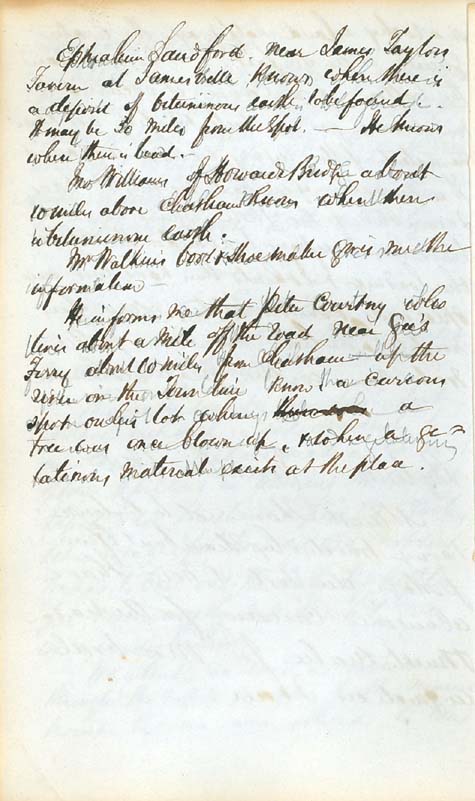 Ephraim Sandford near James Taylors
Tavern at James ville knows where there is
a deposit of bituminous earth to be found
It may be 30 miles from the Spot. — He knows
where there is bead.
Mr Williams of Howards Bridge about
10 miles above Chatham Knows where there
is bituminous earth.
Mr Watkins boot & Shoe maker gives me the
information
He informs me that Peter Courtny who
lives about a mile off the road near Gee's
Ferry about 10 miles from Chatham up the
river on the Town line know a curious
spot on his lot where a
tree was once blown up, & where a ge-
latinous material exists at the place.